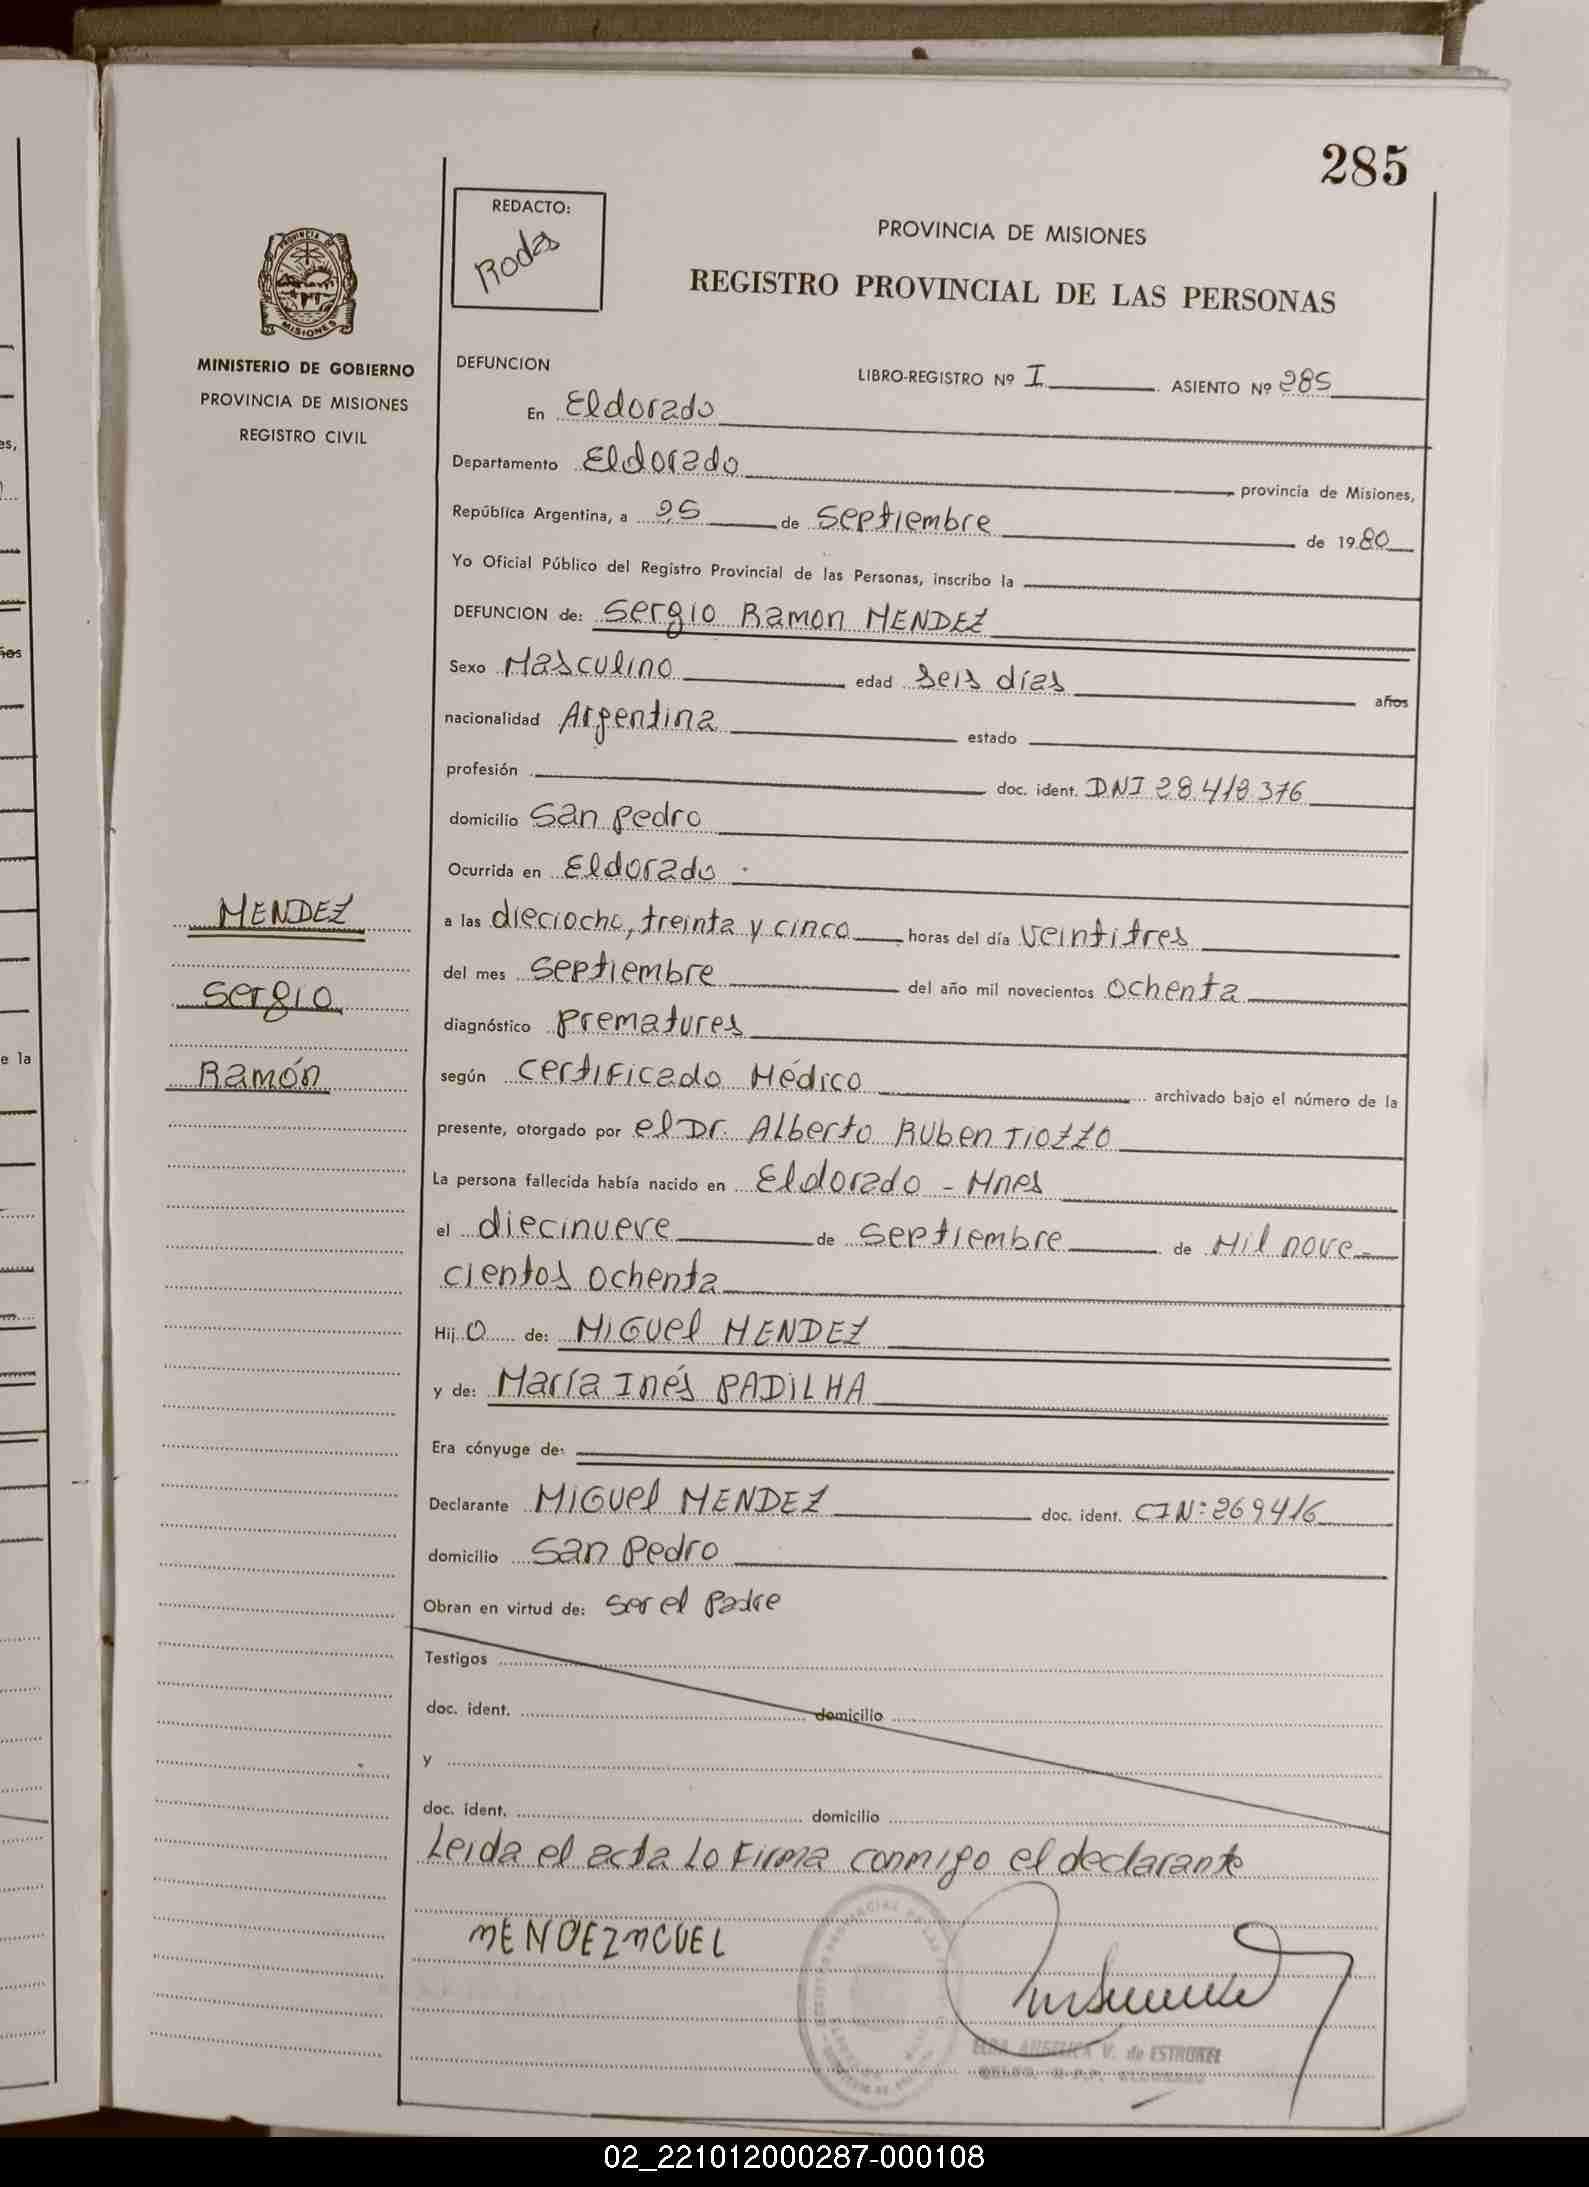 285
REDACTO:
Rodas
PROVINCIA DE MISIONES
REGISTRO PROVINCIAL DE LAS PERSONAS
PROVINCIA DE
MISIONES
MINISTERIO DE GOBIERNO
PROVINCIA DE MISIONES
REGISTRO CIVIL
DEFUNCION
LIBRO-REGISTRO Nº I ASIENTO Nº 285
En Eldorado
Departamento Eldorado provincia de Misiones,
República Argentina, a 25 de Septiembre de 1980
Yo Oficial Público del Registro Provincial de las Personas, inscribo la
DEFUNCION de: Sergio Ramon MENDEZ
Sexo Masculino edad seis días años
nacionalidad Argentina estado
profesión doc. ident. DNI 28.418.376
domicilio San Pedro
Ocurrida en Eldorado
MENDEZ
Sergio
Ramón
a las dieciocho, treinta y cinco horas del día veintitres
del mes Septiembre del año mil novecientos ochenta
diagnóstico prematures
según certificado Médico archivado bajo el número de la
presente, otorgado por el Dr. Alberto Ruben TIOZZO
La persona fallecida había nacido en Eldorado - Mnes
el diecinueve de Septiembre de Mil nove-
cientos ochenta
Hijo de: Miguel MENDEZ
y de: María Inés PADILHA
Era cónyuge de:
Declarante Miguel MENDEZ doc. ident. CIN: 269416
domicilio San Pedro
Obran en virtud de: ser el padre
Testigos
doc. ident. domicilio
y
doc. ident. domicilio
Leida el acta Lo Firma conmigo el declarante
MENDEZ MGUEL
ELBA ANGELICA V. de ESTRUKEL
02_221012000287-000108